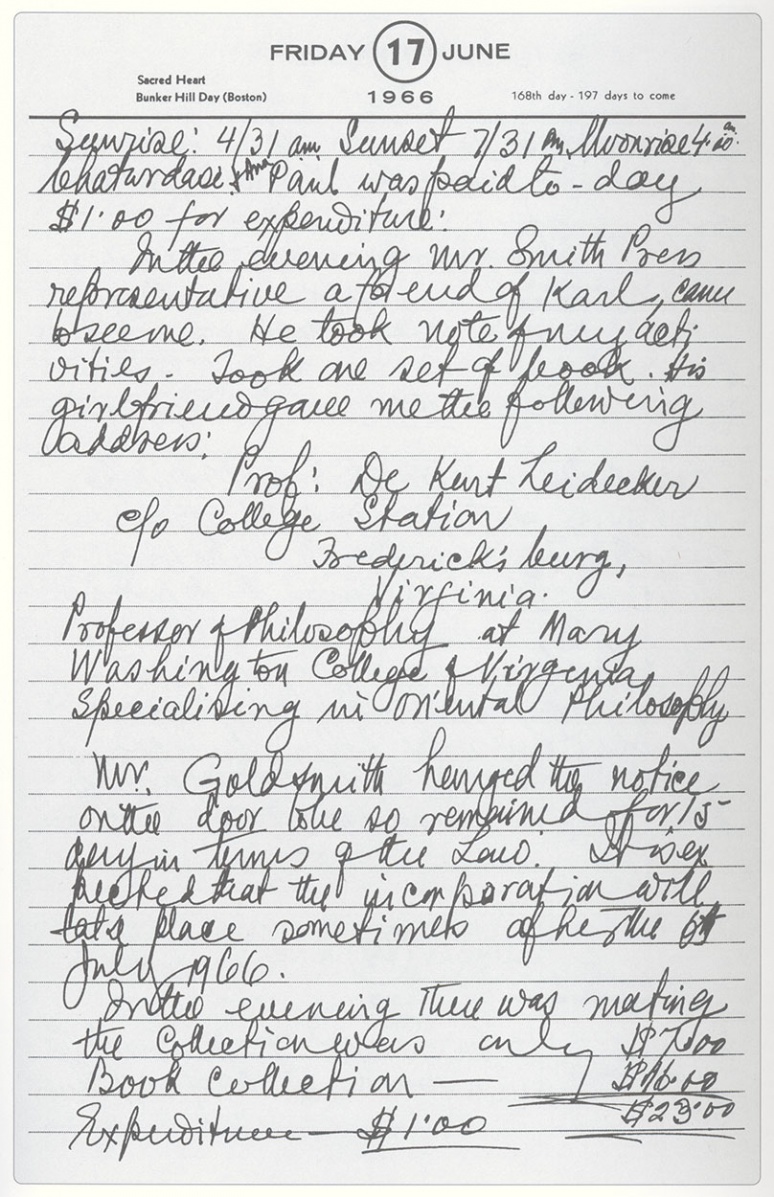 FRIDAY 17 JUNE
Sacred Heart
Bunker Hill Day (Boston)
1966
168th day - 197 days to come
Sunrise: 4/31 am Sunset 7/31 pm Moonrise 4.
Chaturdasi. Paul was paid to-day
$1.00 for expenditure:
In the evening Mr. Smith Press
representative a friend of Karl, came
to see me. He took note of my acti
vities - Took one set of book. His
girlfriend gave me the following
address:
Prof: Dr Kurt Leidecker
c/o College Station
Fredericks burg,
Virginia.
Professor of Philosophy at Mary
Washington College of Virginia
Specialising in oriental Philosophy
Mr. Goldsmith hanged the notice
on the door to be so remained for 15
days in terms of the Law. It is ex
pected that the incorporation will
take place sometimes after the 6th
July 1966.
In the evening There was meeting
the Collection was only $7.00
Book collection — $16.00
$23.00
Expenditure — $1.00